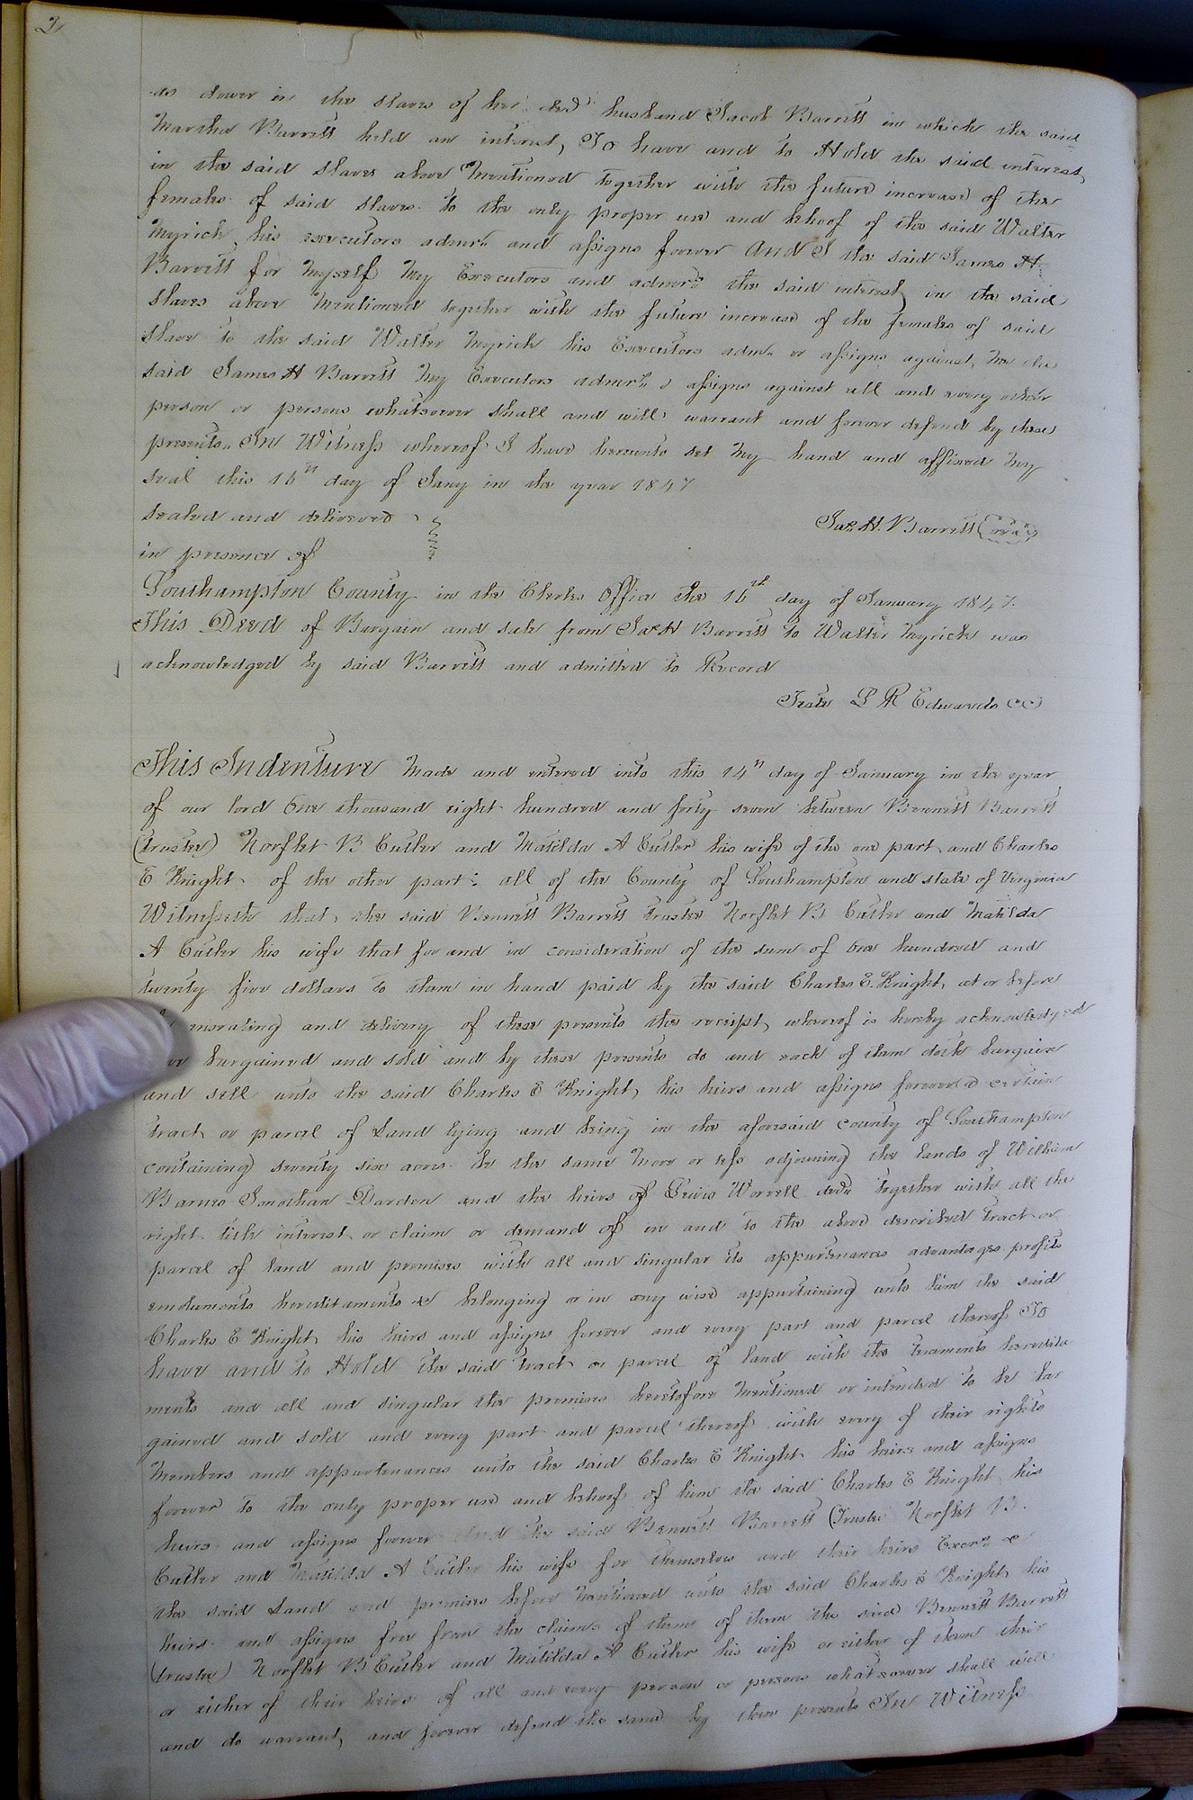 2
as dower in the slaves of her decd husband Jacob Barrett in which the said
Martha Barrett held an interest, To have and to Hold the said interest
in the said slaves above mentioned together with the future increase of the
females of said slaves to the only proper use and behoof of the said Walter
Myrick, his executors admrs and assigns forever And I the said James H
Barrett for myself my Executors and admors the said interest in the said
slaves above mentioned together with the future increase of the females of said
slave to the said Walter Myrick his Executors adms or assigns against me the
said James H Barrett my Executors admrs & assigns against all and every other
person or persons whatsoever shall and will warrant and forever defend by these
presents. In Witness whereof I have hereunto set my hand and affixed my
seal this 16th day of Jany in the year 1847
sealed and delivered
Jas H. Barrett (seal)
in presence of
Southampton County in the Clerks Office the 16th day of January 1847.
This Deed of Bargain and sale from Jas H Barrett to Walter Myrick was
acknowledged by said Barrett and admitted to Record
Teste L R Edwards CC
This Indenture made and entered into this 14th day of January in the year
of our lord One thousand eight hundred and forty seven between Bennett Barrett
(Trustee) Norflet B Cutler and Matilda A Cutler his wife of the one part and Charles
E Knight of the other part: all of the County of Southampton and state of Virginia
Witnesseth that, the said Bennett Barrett trustee Norflet B Cutler and Matilda
A Cutler his wife that for and in consideration of the sum of one hundred and
twenty five dollars to them in hand paid by the said Charles E. Knight, at or before
and delivery of these presents the receipt, whereof is hereby acknowledged
bargained and sold and by these presents do and each of them doth bargain
and sell unto the said Charles E Knight, his heirs and assigns forever a certain
tract or parcel of Land lying and being in the aforesaid county of Southampton
containing seventy six acres be the same more or less adjoining the lands of William
Barnes Jonathan Darden and the heirs of Worrell decd together with all the
right title interest or claim or demand of in and to the above described tract or
parcel of land and premises with all and singular its appurtenances advantages profits
emoluments hereditaments & belonging or in any wise appertaining unto him the said
Charles E Knight, his heirs and assigns forever and every part and parcel thereof To
have and to Hold the said tract or parcel of land with its tenaments heredita
ments and all and singular the premises heretofore mentioned or intended to be bar
gained and sold and every part and parcel thereof with every of their rights
members and appurtenances unto the said Charles E Knight his heirs and assigns
forever to the only proper use and behoof of him the said Charles E Knight his
heirs and assigns forever And the said Bennett Barrett (Trustee Norflet B.
Cutler and Matilda A Cutler his wife for themselves and their heirs Exors &
the said Land and premises before mentioned unto the said Charles E Knight his
heirs and assigns free from the claims of them of them the said Bennett Barrett
(trustee) Norflet B Cutler and Matilda A Cutler his wife or either of them their
or either of their heirs of all and every person or persons whatsoever shall will
and do warrant, and forever defend the same by these presents In Witness